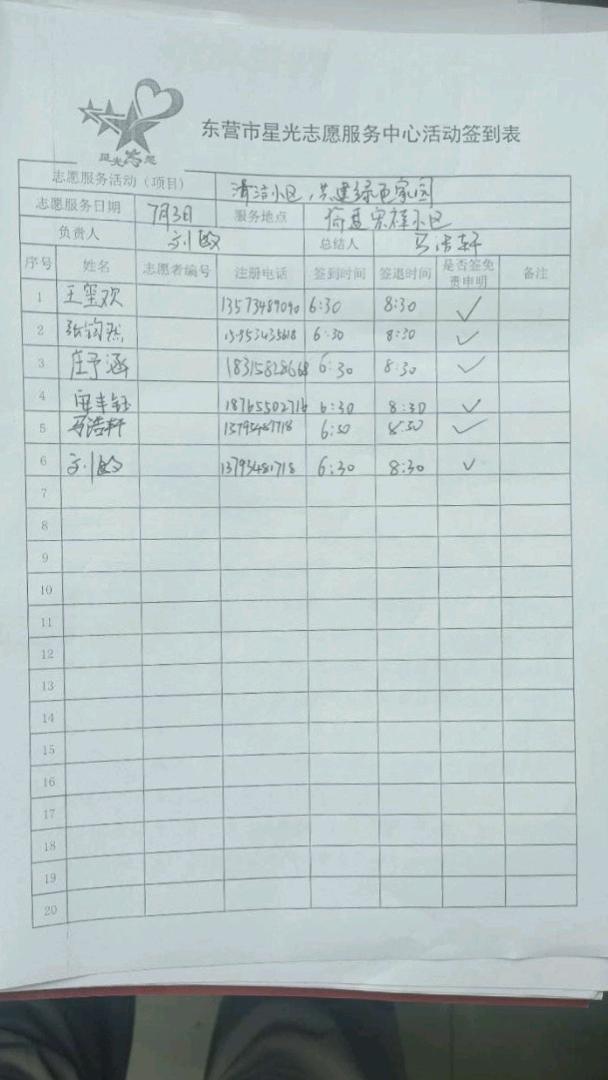 星光志愿
东营市星光志愿服务中心活动签到表
志愿服务活动（项目） 清洁小区，共建绿色家园
志愿服务日期 7月3日 服务地点 小区
负责人 刘敏 总结人 马浩轩
序号 姓名 志愿者编号 注册电话 签到时间 签退时间 是否签免责申明 备注
1 王玺欢 13573489090 6:30 8:30 ✓
2 张钧然 6:30 8:30 ✓
3 庄予涵 18315828668 6:30 8:30 ✓
4 18765502716 6:30 8:30 ✓
5 马浩轩 13793481718 6:30 8:30 ✓
6 刘敏 13793481718 6:30 8:30 ✓
7
8
9
10
11
12
13
14
15
16
17
18
19
20